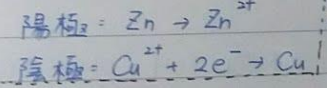 陽極: Zn → Zn²⁺
陰極: Cu²⁺ + 2e⁻ → Cu